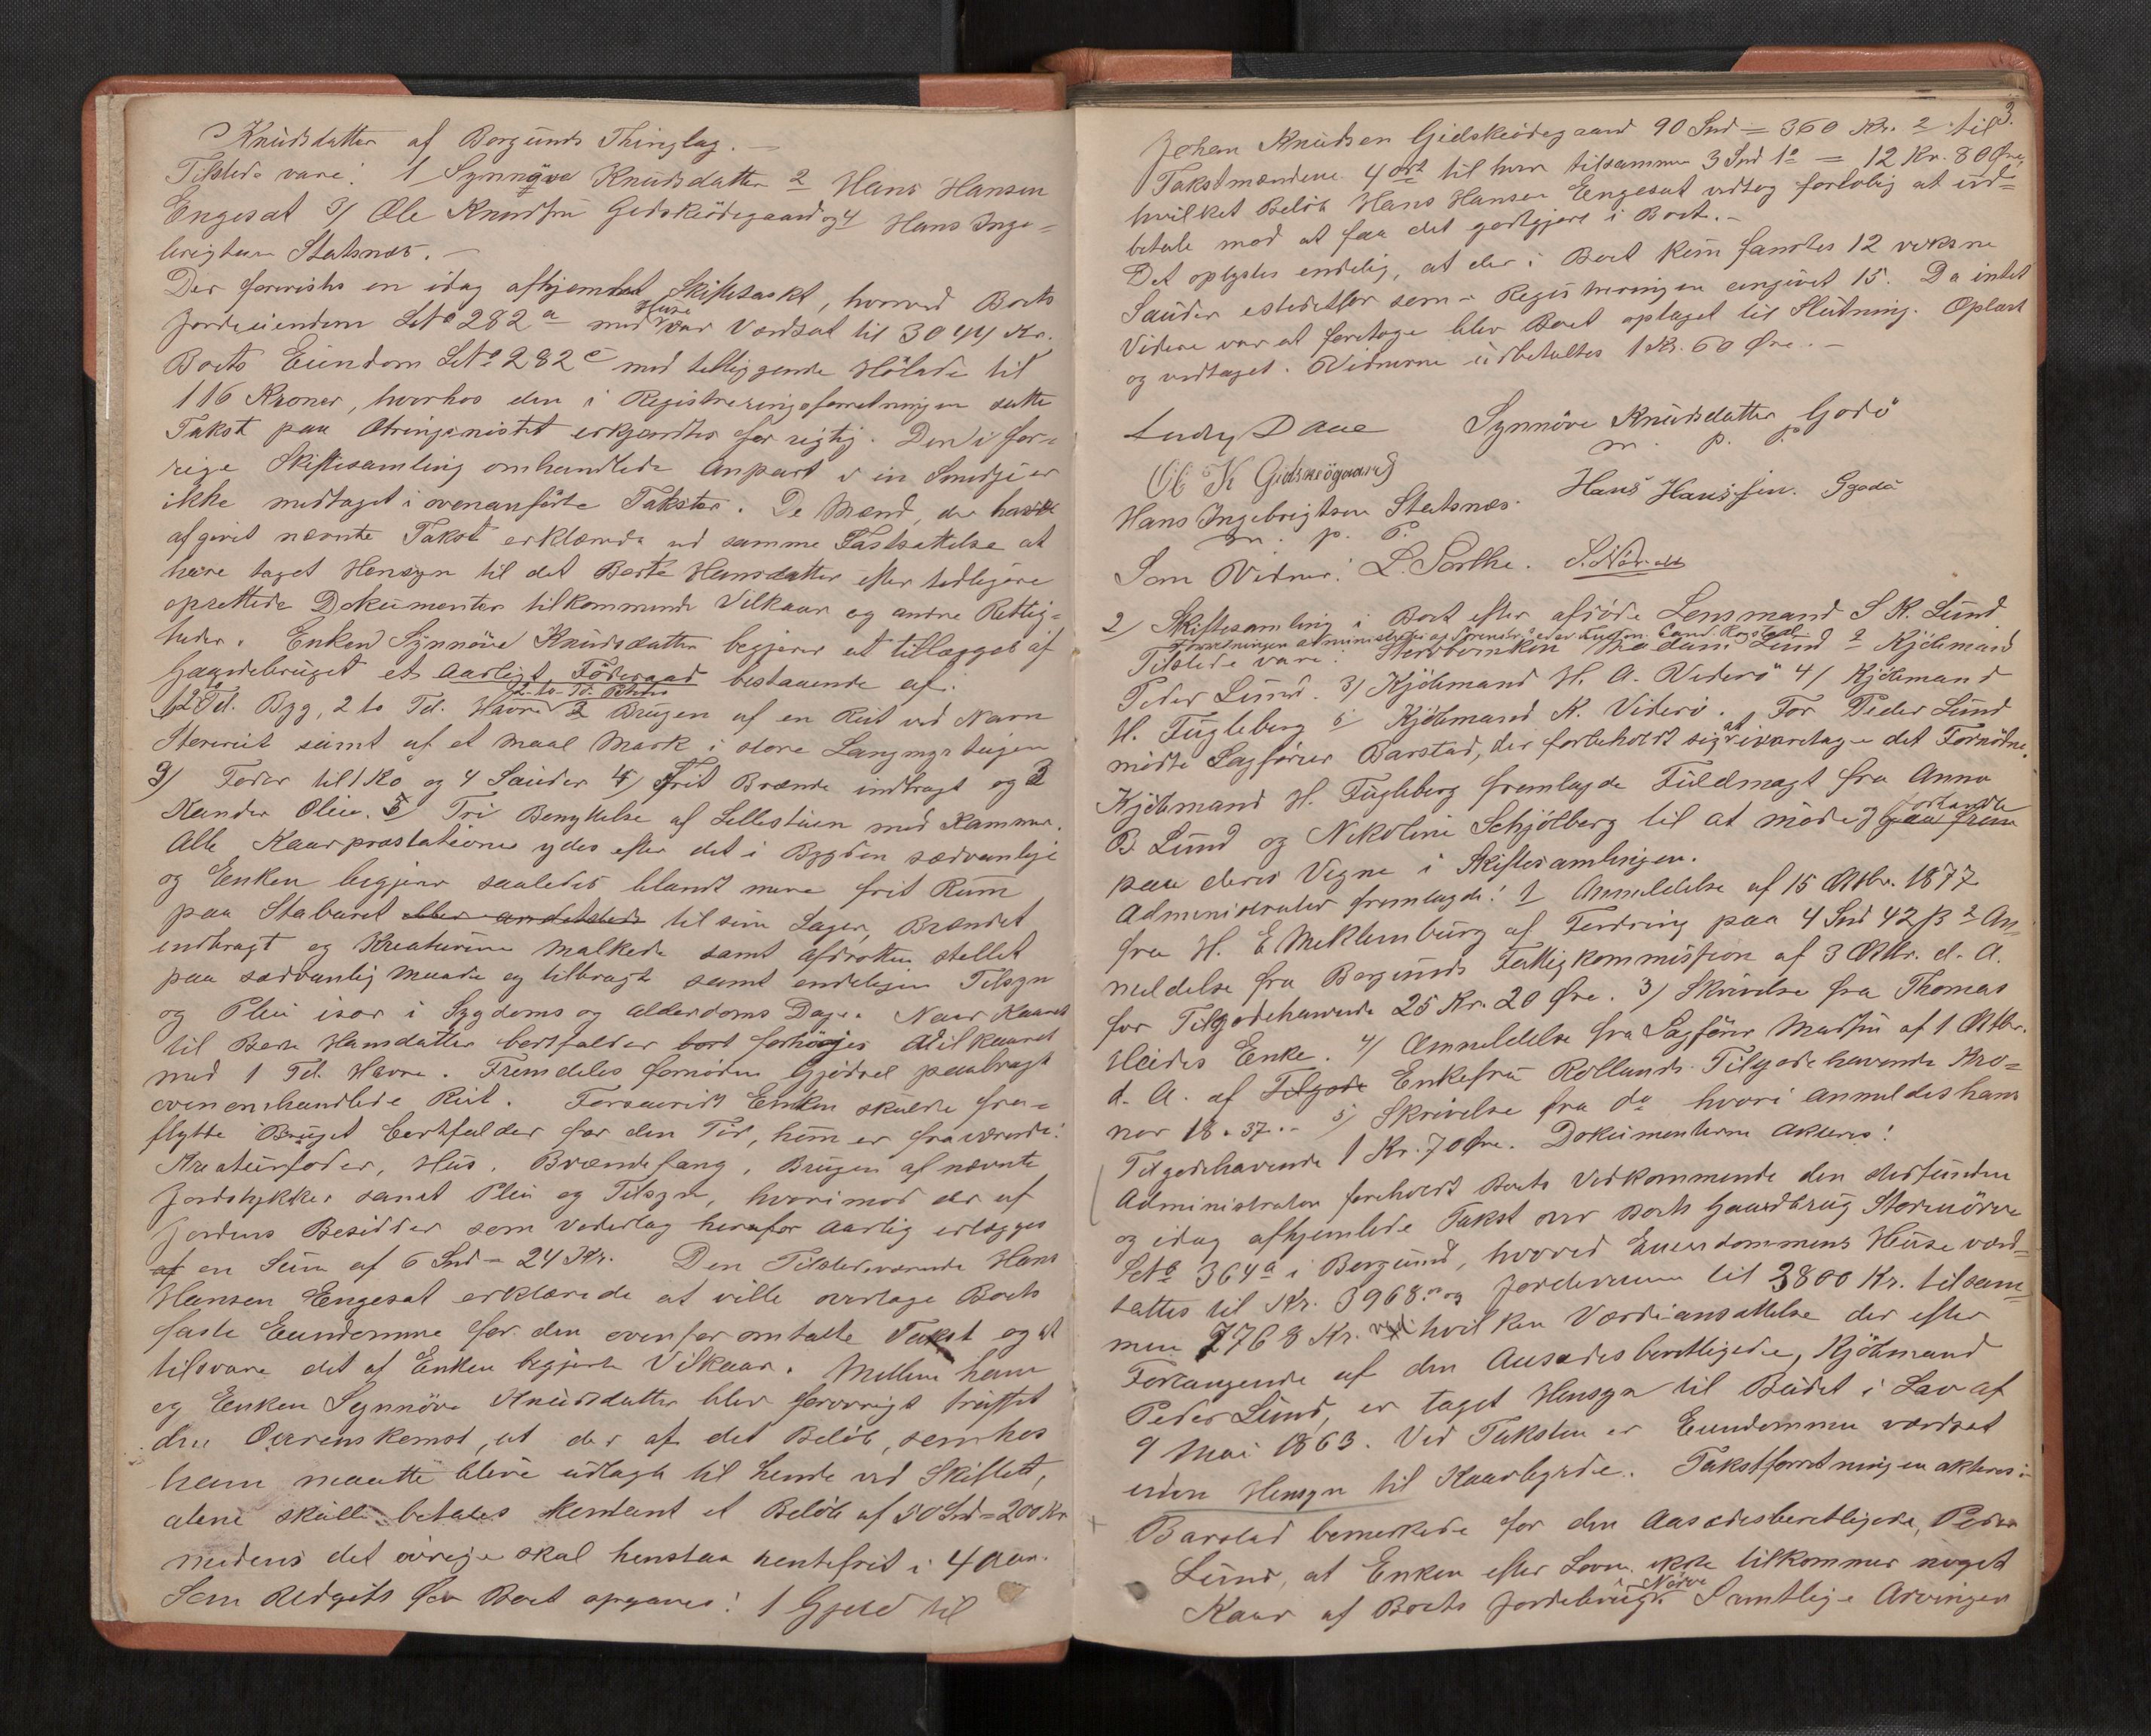 Knudsdatter af Borgunds Thinglag. –
Tilstede vare: 1 Synnøve Knudsdatter 2 Hans Hansen
Engesat 3/ Ole Knudsen Gidskeödegaard og 4 Hans Inge=
brigtsen Statsnæs. –
Der foreviste en idag afhjemlet Skiftetaxt, hvorved Boets
Jordeiendom LNº 282 a med Huse var Værdsat til 3044 Kr.
Boets Eiendom LNº 282 c med tilliggende Hölade til
116 Kroner, hvorhos den i Registreringsforretningen satte
Takst paa erkjendtes for rigtig. Den i for=
rige Skiftesamling omhandlede Anpart i en Smedje er
ikke medtaget i ovenanførte Takster. De Mænd, der havde
afgivet nævnte Takst erklærede ved samme Fastsættelse at
have taget Hensyn til det Berte Hansdatter efter tidligere
oprettede Dokumenter tilkommende Vilkaar og andre Rettig=
heder. Enken Synnöve Knudsdatter begjærer at tillægges af
Gaardebruget et aarligt Föderaad bestaaende af:
1 2 to Td. Byg, 2 to Td. Havre 2 to Td. Poteter 2 Brugen af en Reit ved Navn
Storreit samt af et Maal Mark i store Langmyrteigen
3) Foder til 1 Ko og 4 Sauder 4) Frit Brænde indbragt og 3
Kander Olie. 5) Fri Benyttelse af Lillestuen med Kammer.
Alle Kaarpræstationer ydes efter det i Bygden sædvanlige
og Enken begjærer saaledes blandt mere frit Rum
paa Staburet eller andetsteds til sine Sager, Brændet
indbragt og Kreaturene malkede samt afdrotten stellet
paa sædvanlig Maade og tilbragt samt endeligen Tilsyn
og Pleie især i Sygdoms og Alderdoms Dage. Naar Kaaret
til Berte Hansdatter bortfalder bort forhöies Vilkaaret
med 1 Td. Havre. Fremdeles fornöden Gjödsel paabragt
ovenomhandlede Reit. Forsaavidt Enken skulde fra=
flytte Bruget bortfalder for den Tid, hun er fraværende:
Kreaturfoder, Hus, Brændefang, Brugen af nævnte
Jordstykker samt Pleie og Tilsyn, hvorimod der af
Jordens Besidder som Vederlag herfor aarlig erlægges
af en Sum af 6 Spd = 24 Kr. Den Tilstedeværende Hans
Hansen Engesat erklærede at ville overtage Boets
faste Eiendomme for den ovenfor omtalte Takst og at
tilsvare det af Enken begjærte Vilkaar. Mellem ham
og Enken Synnöve Knudsdatter blev forövrigt truffet
den Overenskomst, at der af det Belöb, som hos
ham maatte blive udlagt til hende ved Skiftet,
alene skulle betales kontant et Belöb af 50 Spd = 200 Kr
medens det övrige skal henstaa rentefrit i 4 Aar.
Som Udgift for Boet opgaves: 1 Gjeld til
3.
Johan Knudsen Gidskeödegaard 90 Spd = 360 Kr. 2 til
Takstmændene 4 ort til hver tilsammen 3 Spd 1 o = 12 Kr. 80 Øre,
hvilket Belöb Hans Hansen Engesat vedtog forlöbig at ud=
betale mod at faa det godtgjort i Boet. –
Det oplystes endelig, at der i Boet kun fandtes 12 voksne
Sauder istedetfor som i Registreringen angivet 15. Da intet
Videre var at foretage blev Boet optaget til Slutning. Oplæst
og vedtaget. Vidnerne udbetaltes 1 Kr. 60 Øre. –
Ludv Daae Synnöve Knudsdatter Godö
m. p. P.
Ole K Gidskeögaard
Hans Hansen. Godö
Hans Ingebrigtsen Statsnæs.
m. p. P.
Som Vidner: L. Sorthe.
2) Skiftesamling i Boet efter afdöde Lensmand S K. Lund.
Forretningen administreres af Sorenskriverens Fuldm. Cand.
Tilstede vare: Stervboenken Madam Lund 2 Kjöbmand
Peder Lund. 3) Kjöbmand H. A. Viderö 4) Kjöbmand
H. Fugleberg 5 Kjöbmand K. Viderö. For Peder Lund
mödte Sagförer Barstad, der forbeholdt sig at ivaretage det Fornödne.
Kjöbmand H. Fugleberg fremlagde Fuldmagt fra Anna
B. Lund og Nikoline Schjölberg til at möde og forhandle
paa deres Vegne i Skiftesamlingen.
Administrator fremlagde: 1 Anmeldelse af 15 Oktbr. 1877
fra H. E Meklenburg af Fordring paa 4 Spd 42 ß 2 An=
meldelse fra Borgunds Fattigkommission af 3 Oktbr. d. A.
for Tilgodehavende 25 Kr. 20 Øre. 3) Skrivelse fra Thomas
Heides Enke. 4) Anmeldelse fra Sagförer Madsen af 1 Oktbr.
d. A. af Tilgode Enkefru Rollands Tilgodehavende Kro=
ner 18.37. – 5) Skrivelse fra do hvori anmeldes hans
Tilgodehavende 1 Kr. 70 Øre. Dokumenterne akteres!
Administrator foreholdt Boets Vedkommende den stedfundne
og idag afhjemlede Takst over Boets Gaardbrug Storenörve
LNº 364 a i Borgund, hvorved Eiendommens Huse værd=
sattes til Kr. 3968.00 og Jordeveien til 3800 Kr. tilsam=
men 7768 Kr. ved hvilken Værdiansættelse der efter
Forlangende af den Aasædesberettigede, Kjöbmand
Peder Lund, er taget Hensyn til Budet i Lov af
9 Mai 1863. Ved Taksten er Eiendommen værdsat
uden Hensyn til Kaarbyrde. Takstforretningen akteres:
Barstad bemerkede for den Aasædesberettigede, Peder
Lund, at Enken efter Loven ikke tilkommer noget
Kaar af Boets Jordebrug Nörve. Samtlige Arvinger